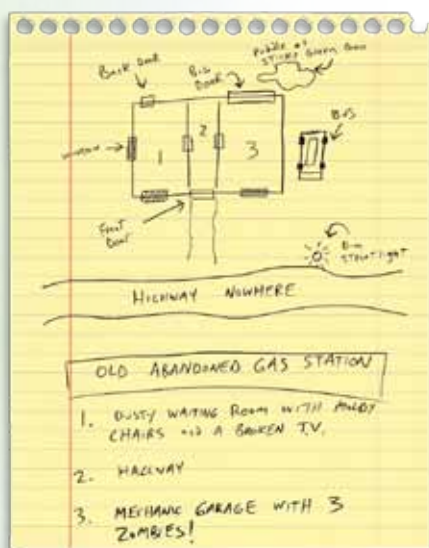 Back Door
Big Door
Puddle of Sticky Green Goo
Window
1
2
3
Bus
Front Door
Dim Streetlight
HIGHWAY NOWHERE
OLD ABANDONED GAS STATION
1. DUSTY WAITING ROOM WITH MOLDY
CHAIRS AND A BROKEN T.V.
2. HALLWAY
3. MECHANIC GARAGE WITH 3
ZOMBIES!